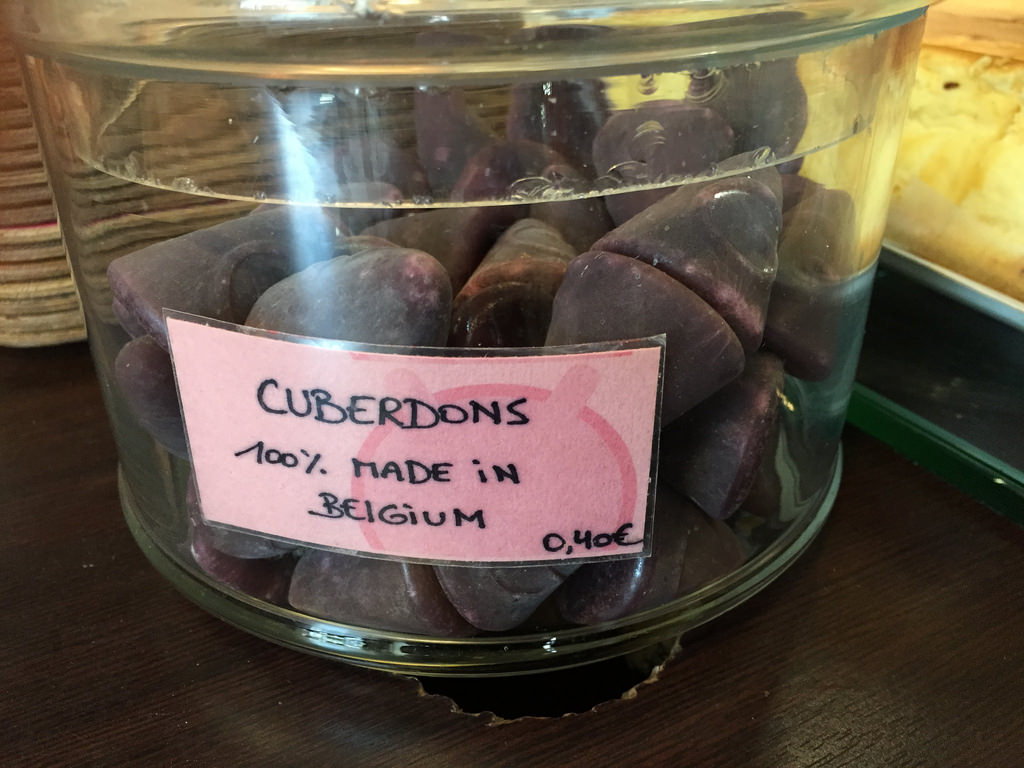 CUBERDONS
100% MADE iN
BELGiUM
0,40€